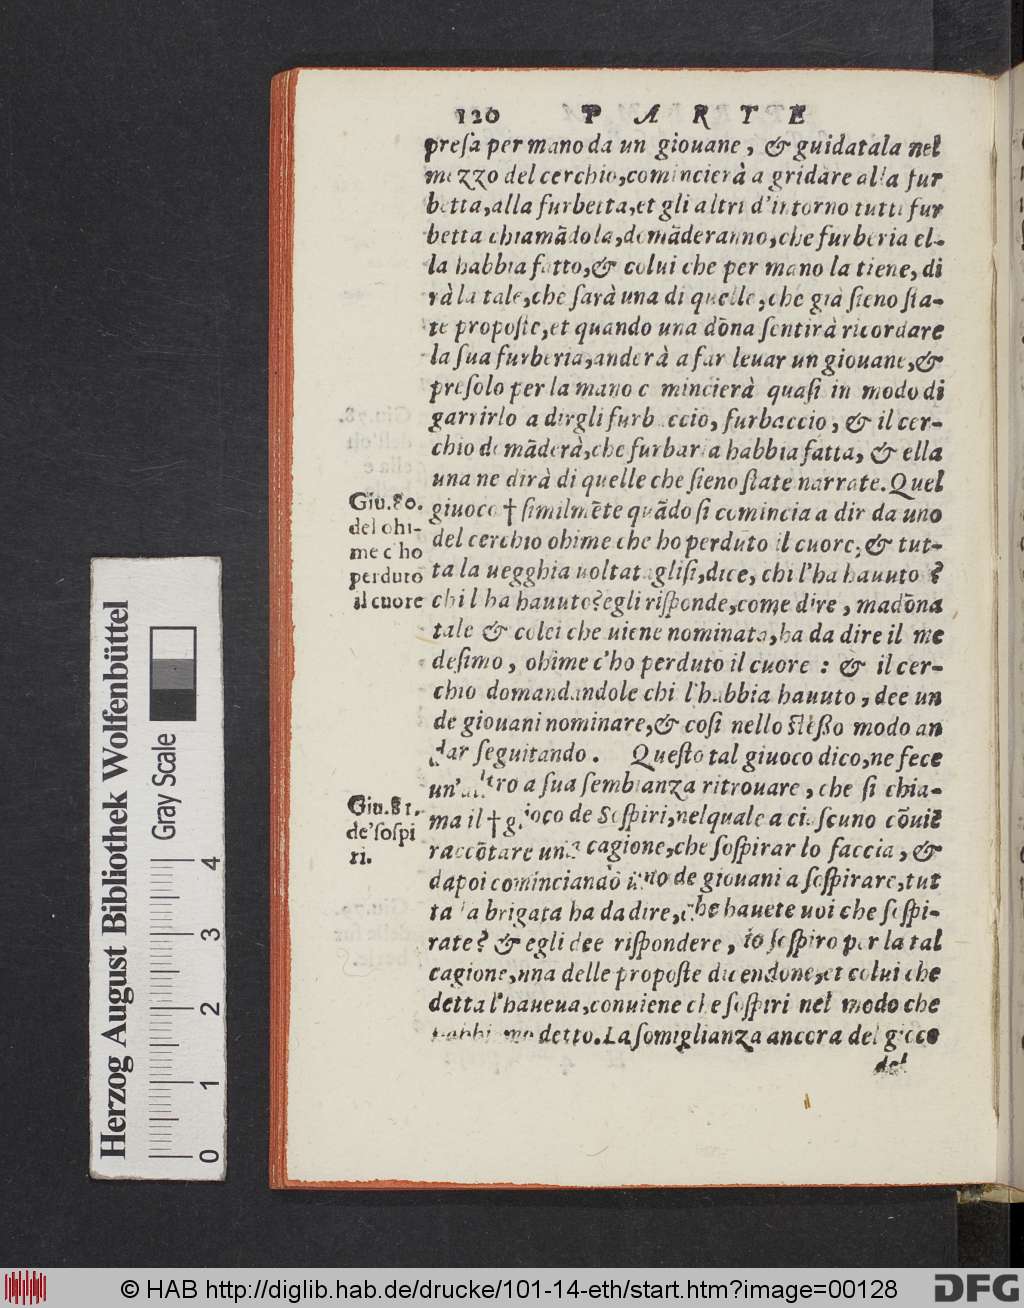 120 PARTE
presa per mano da un giouane, & guidatala nel
mezzo del cerchio, comincierà a gridare alla fur
betta, alla furbetta, et gli altri d'intorno tutti fur
betta chiamãdola, domãderanno, che furberia el-
la habbia fatto, & colui che per mano la tiene, di
rà la tale, che sarà una di quelle, che già sieno sta-
te proposte, et quando una dõna sentirà ricordare
la sua furberia, anderà a far leuar un giouane, &
presolo per la mano comincierà quasi in modo di
garrirlo a dirgli furbaccio, furbaccio, & il cer-
chio domãderà, che furbaria habbia fatta, & ella
una ne dirà di quelle che sieno state narrate. Quel
giuoco † similmẽte quãdo si comincia a dir da uno
del cerchio ohime che ho perduto il cuore, & tut-
ta la uegghia uoltatoglisi, dice, chi l'ha hauuto?
chi l'ha hauuto? egli risponde, come dire, madõna
tale & colei che uiene nominata, ha da dire il me
desimo, ohime c'ho perduto il cuore : & il cer-
chio domandandole chi l'habbia hauuto, dee un
de giouani nominare, & cosi nello stesso modo an
dar seguitando. Questo tal giuoco dico, ne fece
un'altro a sua sembianza ritrouare, che si chia-
ma il † gioco de Sospiri, nel quale a ciascuno cõuiẽ
raccõtare una cagione, che sospirar lo faccia, &
dapoi cominciando uno de giouani a sospirare, tut
ta la brigata ha da dire, che hauete uoi che sospi-
rate? & egli dee rispondere, io sospiro per la tal
cagione, una delle proposte dicendone, et colui che
detta l'haueua, conuiene che sospiri nel modo che
habbiamo detto. La somiglianza ancora del gioco
del
Giu. 80.
del ohi-
me c'ho
perduto
il cuore
Giu. 81.
de' sospi
ri.
Herzog August Bibliothek Wolfenbüttel
Gray Scale
0 1 2 3 4
© HAB http://diglib.hab.de/drucke/101-14-eth/start.htm?image=00128
DFG